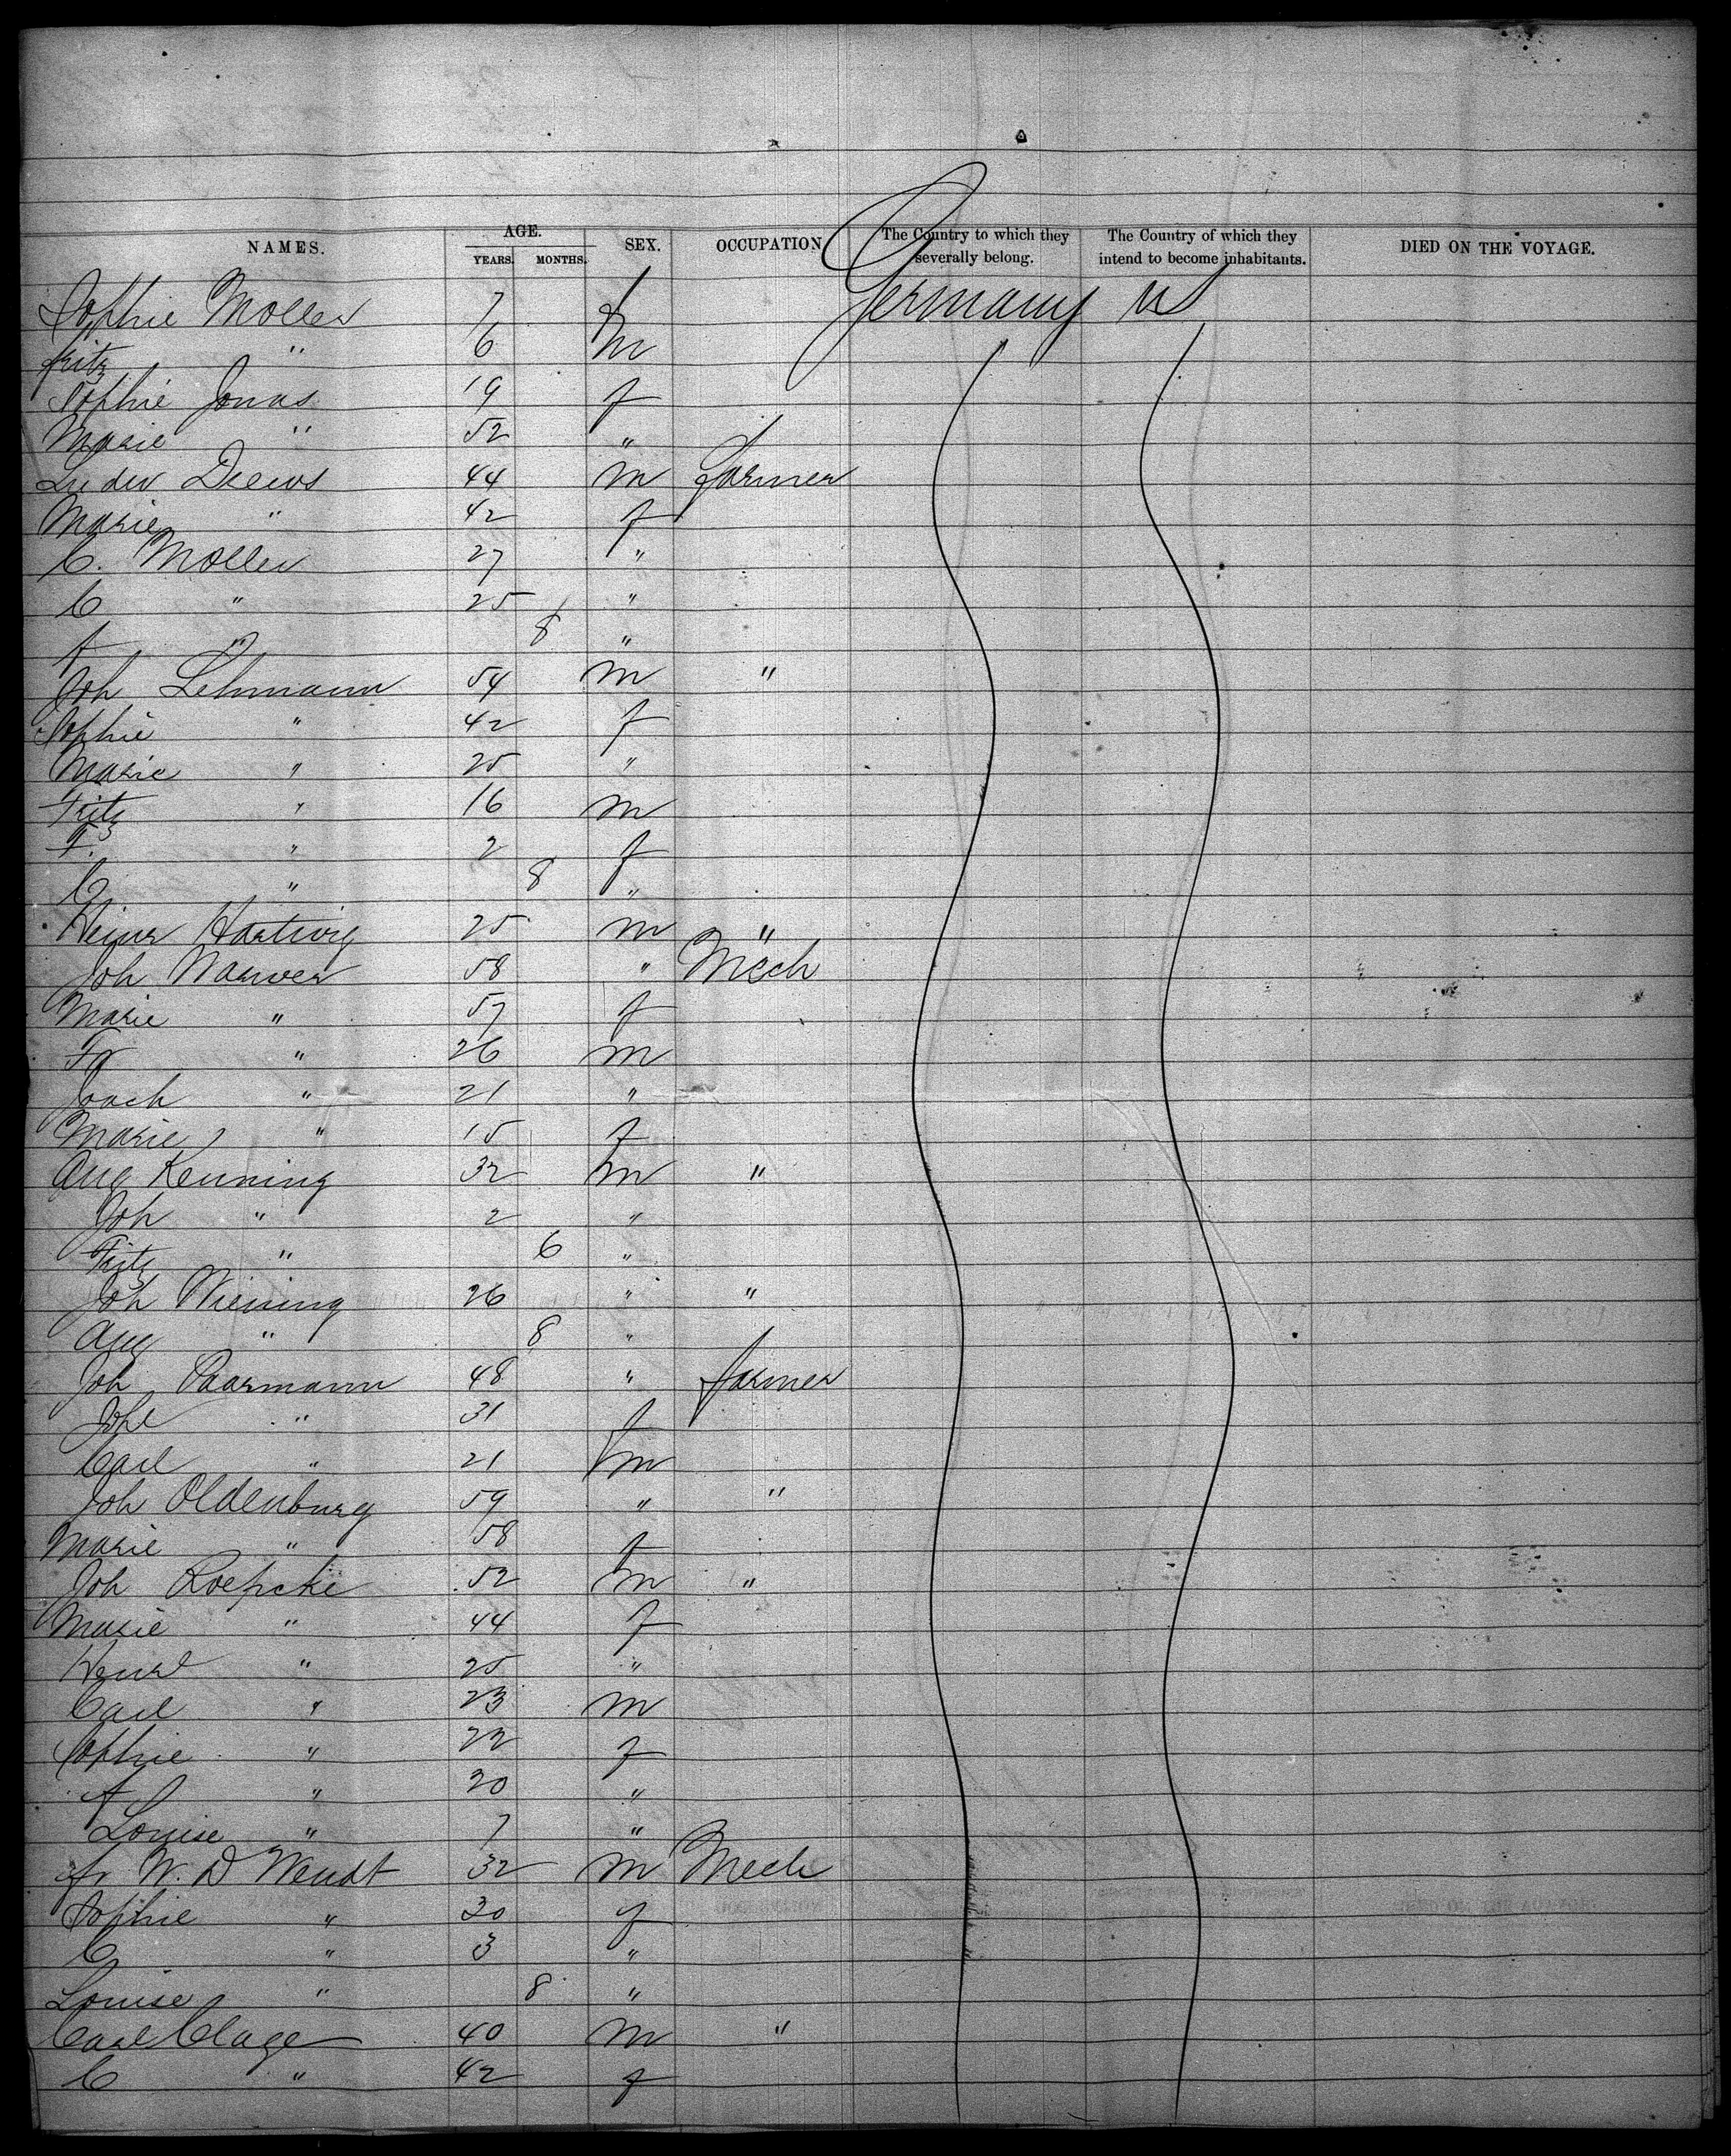 NAMES. AGE. YEARS. MONTHS. SEX. OCCUPATION The Country to which they severally belong. The Country of which they intend to become inhabitants. DIED ON THE VOYAGE.
Sophie Moller 7 f Germany US
Fritz " 6 m
Sophie Jonas 19 f
Marie " 52 "
Luder Drews 44 m farmer
Marie " 42 f
C. Moller 27 "
C " 25 "
A " 8 "
Joh Lehmann 54 m "
Sophie " 42 f
Marie " 25 "
Fritz " 16 m
F. " 2 f
C " 8 "
Heinr Hartwig 25 m "
Joh Warwer 58 " Mech
Marie " 57 f
Fr " 26 m
Joach " 21 "
Marie " 15 f
Aug Kenning 32 m "
Joh " 2 "
Fritz " 6 "
Joh Wiening 26 " "
Aug " 8 "
Joh Paarmann 48 " farmer
Joh " 31 f
Carl " 21 m
Joh Oldenburg 59 " "
Marie " 58 f
Joh Roepcke 52 m "
Marie " 44 f
" 25 "
Carl " 23 m
Sophie " 22 f
A " 20 "
Louise " 7 "
Fr W. D Wendt 32 m Mech
Sophie " 30 f
C " 3 "
Louise " 8 "
Carl Clage 40 m "
C " 42 f